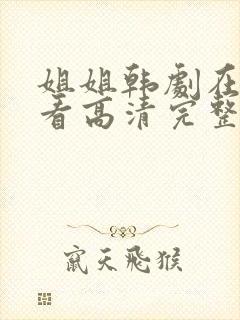 姐姐韩劇在
看高清完整
窜天飛猴